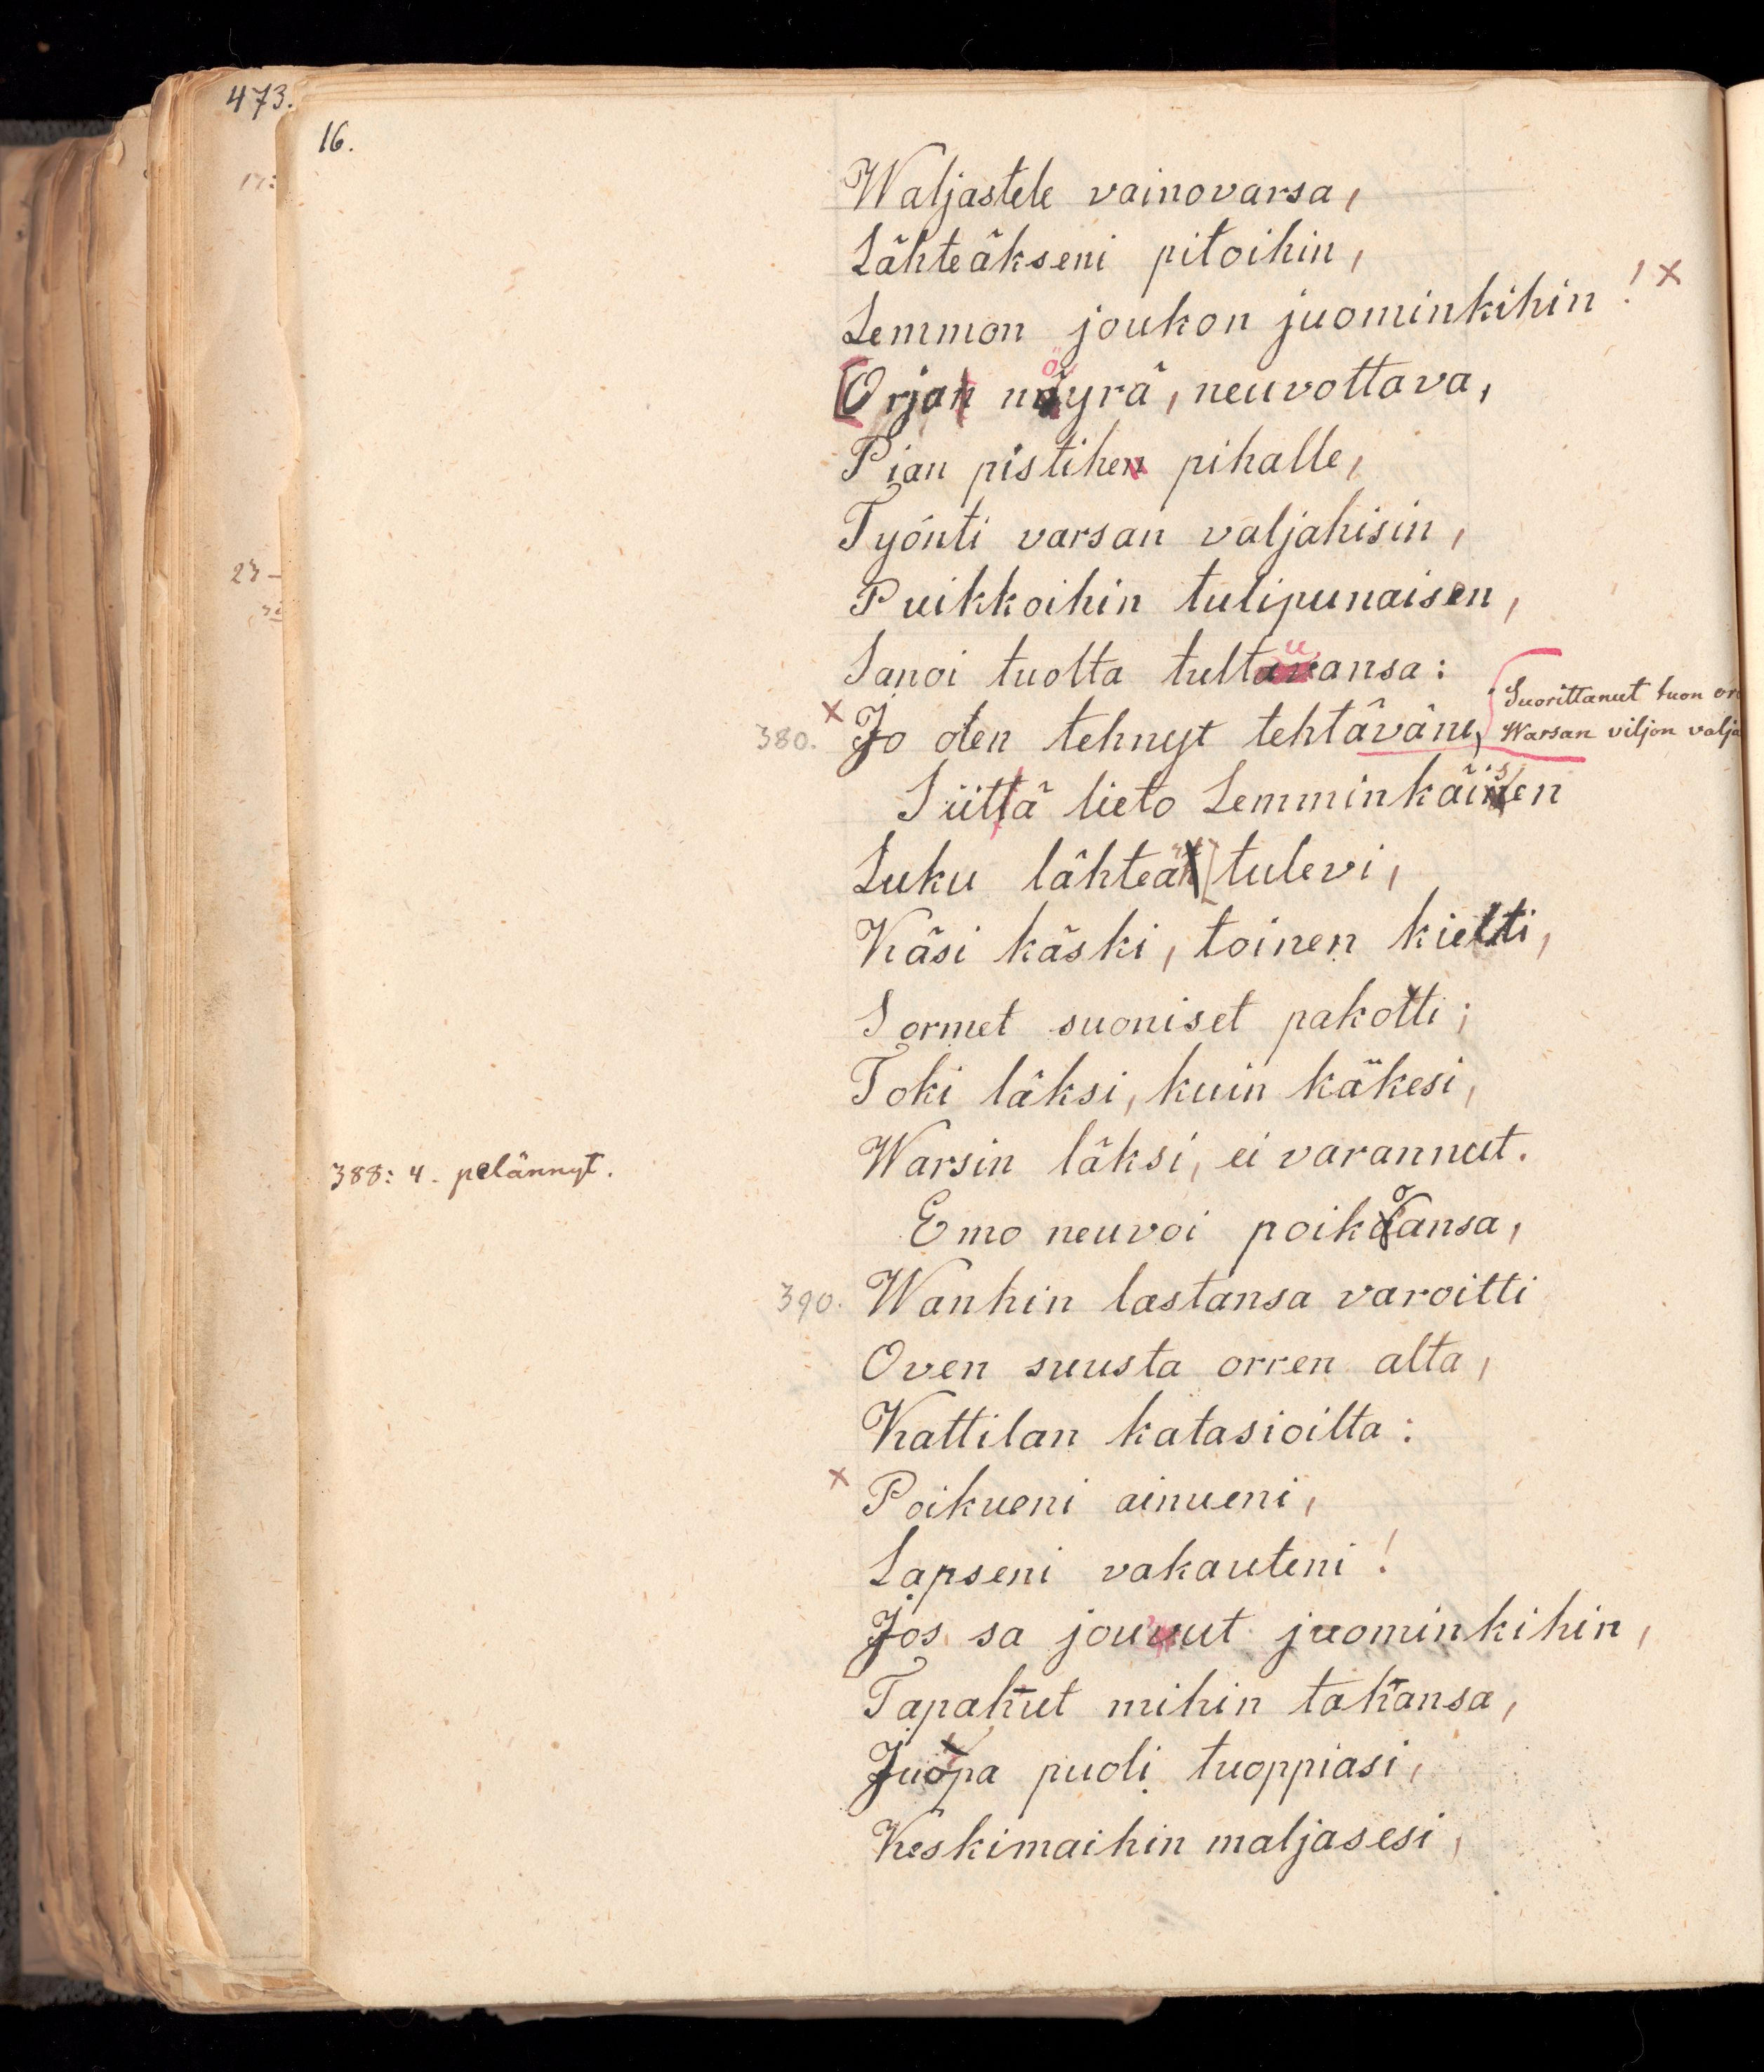 473.
16.
Waljastele vainovarsa,
Lähteäkseni pitoihin,
Lemmon joukon juominkihin! x
Orja nöyrä, neuvottava,
Pian pistihe pihalle,
Työnti varsan valjahisin,
Puikkoihin tulipunaisen,
Sanoi tuolta tultuansa:
x
380. Jo olen tehnyt tehtäväni,
Suorittanut tuon
Warsan viljon
Siitä lieto Lemminkäisen
Luku lähteä tulevi,
Käsi käski, toinen kielti,
Sormet suoniset pakotti;
Toki läksi, kuin käkesi,
Warsin läksi, ei varannut.
388: 4. pelännyt.
Emo neuvoi poikoansa,
390. Wanhin lastansa varoitti
Oven suusta orren alta,
Kattilan katasioilta:
x Poikueni ainueni,
Lapseni vakauteni!
Jos sa jouvut juominkihin,
Tapahut mihin tahansa,
Juopa puoli tuoppiasi,
Keskimaihin maljasesi,